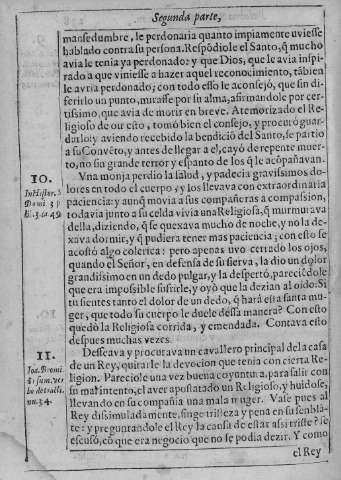 Segunda parte,
mansedumbre, le perdonaria quanto impiamente uviesse
hablado contra su persona. Respõdiole el Santo, q̃ mucho
avia le tenia ya perdonado: y que Dios, que le avia inspi-
rado a que viniesse a hazer aquel reconocimiento, tãbien
le avria perdonado; con todo esso le aconsejó, que sin di-
ferirlo un punto, mirasse por su alma, afirmandole por cer-
tissimo, que avia de morir en breve. Atemorizado el Re-
ligioso de our esto, tomó bien el consejo, y procuró guar-
darlo: y aviendo recebido la bendició del Santo, se partio
a su Convẽto, y antes de llegar a el, cayó de repente muer-
to, no sin grande terror y espanto de los q̃ le acopañavan.
10.
Vna monja perdio la salud, y padecia gravissimos do-
In Histor. S
Domi. 3 p
li. 3. ca 49
lores en todo el cuerpo, y los llevava con extraordinaria
paciencia: y aunq̃ movia a sus compañeras a compassion,
todavia junto a su celda vivia una Religiosa, q̃ murmurava
della, diziendo, q̃ se quexava mucho de noche, y no la de-
xava dormir, y q̃ pudiera tener mas paciencia; con esto se
acostó algo colerica: pero apenas uvo cerrado los ojos,
quando el Señor, en defensa de su sierva, la dio un dolor
grandissimo en un dedo pulgar, y la despertó, pareciẽdole
que era impossible sufrirle, y oyó que la dezian al oido: Si
tu sientes tanto el dolor de un dedo, q̃ hará esta santa mu-
ger, que todo su cuerpo le duele dessa manera? Con esto
quedò la Religiosa corrida, y emendada. Contava esto
despues muchas vezes.
11.
Desseava y procurava un cavallero principal de la casa
Ioa. Bromi.
de un Rey, quitarle la devocion que tenia con cierta Re-
ligion. Pareciole una vez buena coyuntura, para salir con
su mal intento, el aver apostatado un Religioso, y huidose,
llevando en su compañia una mala muger. Vase pues al
Rey dissimuladamente, finge tristeza y pena en su semblã-
te: y preguntandole el Rey la causa de estar assi triste? se
escusó, cõ que era negocio que no se podia dezir. Y como
el Rey